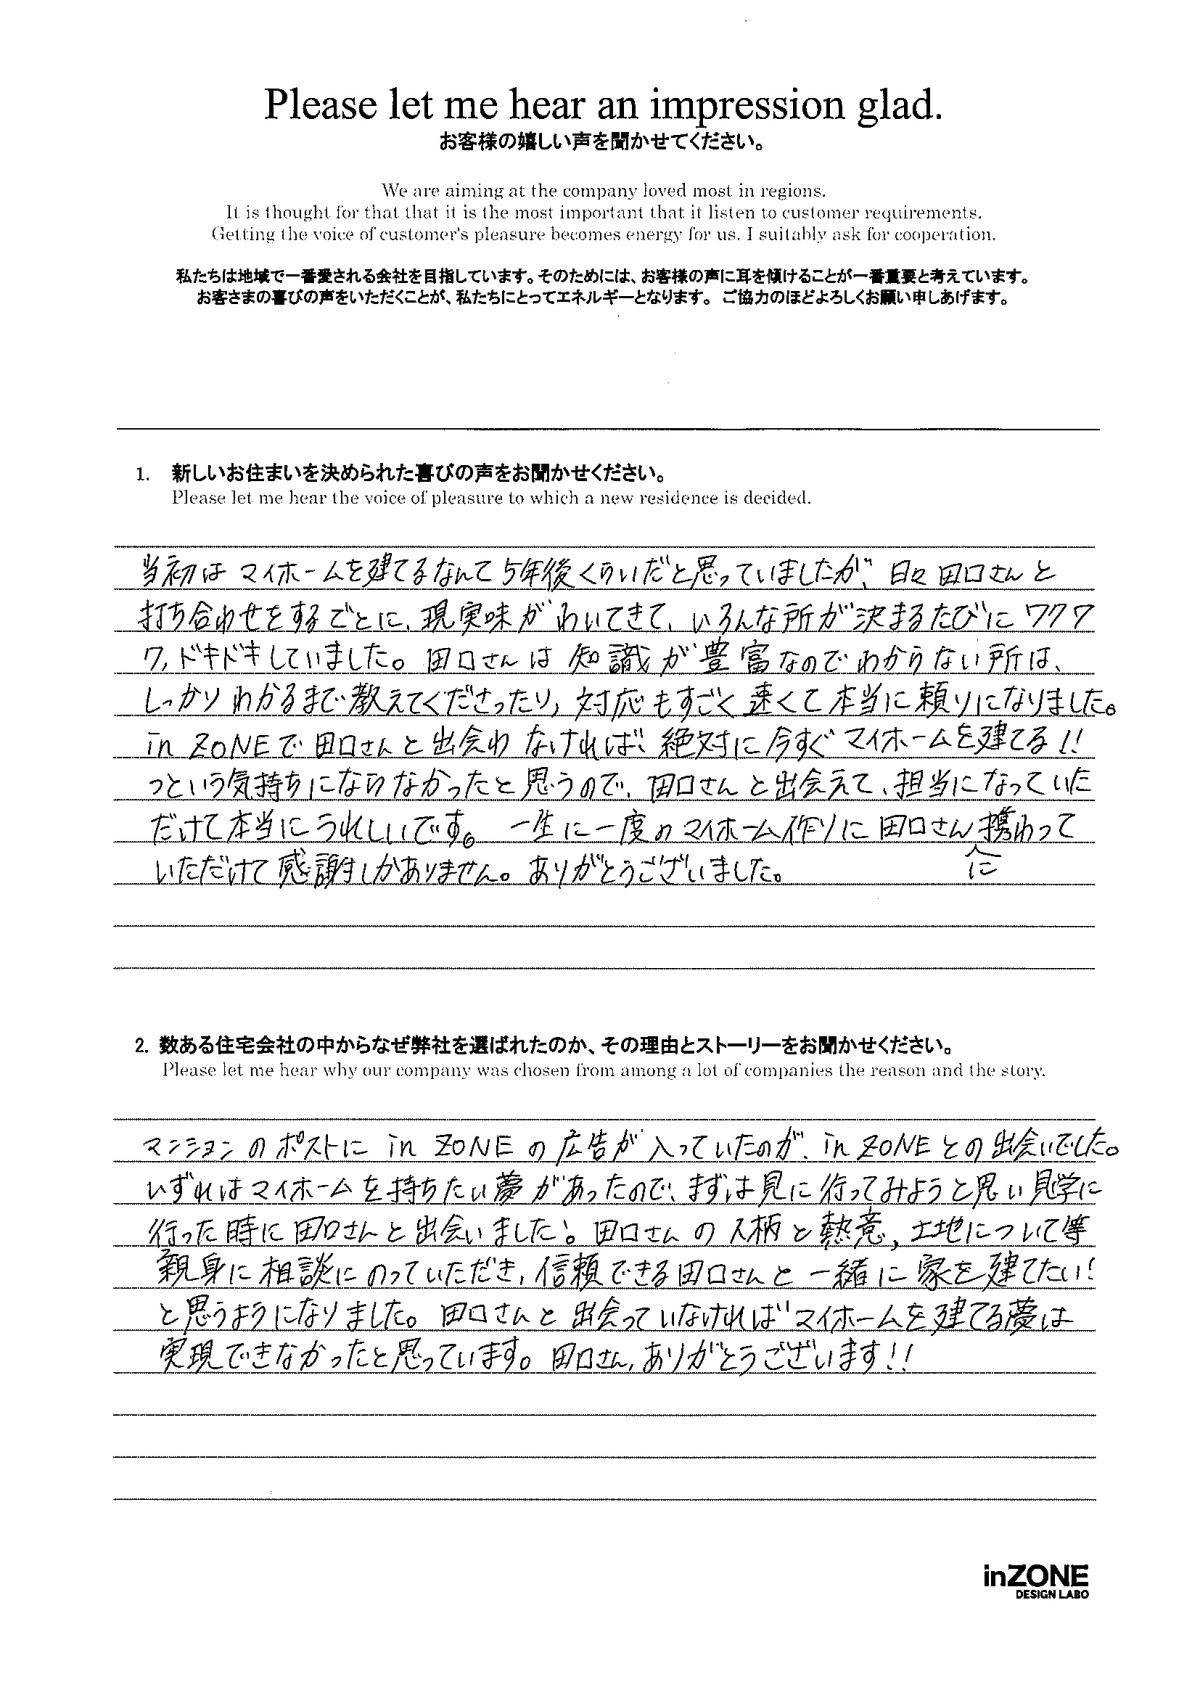 Please let me hear an impression glad.
お客様の嬉しい声を聞かせてください。
We are aiming at the company loved most in regions.
It is thought for that that it is the most important that it listen to customer requirements.
Getting the voice of customer's pleasure becomes energy for us. I suitably ask for cooperation.
私たちは地域で一番愛される会社を目指しています。そのためには、お客様の声に耳を傾けることが一番重要と考えています。
お客さまの喜びの声をいただくことが、私たちにとってエネルギーとなります。 ご協力のほどよろしくお願い申しあげます。
1. 新しいお住まいを決められた喜びの声をお聞かせください。
Please let me hear the voice of pleasure to which a new residence is decided.
当初は マイホームを建てるなんて 5年後くらいだと思っていましたが、日々 田口さんと
打ち合わせをするごとに、現実味が わいてきて、いろんな所が決まるたびに ワクワ
ワ,ドキドキしていました。田口さんは 知識が豊富なのでわからない所は、
しっかりわかるまで教えてくださったり, 対応もすごく速くて本当に頼りになりました。
in ZONEで 田口さんと出会わ なければ、絶対に今すぐ マイホームを建てる!!
っという気持ちにならなかったと思うので、田口さんと出会えて、担当になっていた
だけて本当にうれしいです。 一生に一度の マイホーム作りに 田口さん携わって
に
いただけて感謝しかありません。ありがとうございました。
2. 数ある住宅会社の中からなぜ弊社を選ばれたのか、その理由とストーリーをお聞かせください。
Please let me hear why our company was chosen from among a lot of companies the reason and the story.
マンションのポストに in ZONEの広告が入っていたのが、in ZONEとの出会いでした。
いずれはマイホームを持ちたい夢があったので、まずは見に行ってみようと思い見学に
行った時に田口さんと出会いました! 田口さんの人柄と熱意, 土地について等
親身に相談にのっていただき, 信頼できる田口さんと一緒に家を建てたい!
と思うようになりました。田口さんと出会っていなければマイホームを建てる夢は
実現できなかったと思っています。田口さん,ありがとうございます!!
inZONE
DESIGN LABO